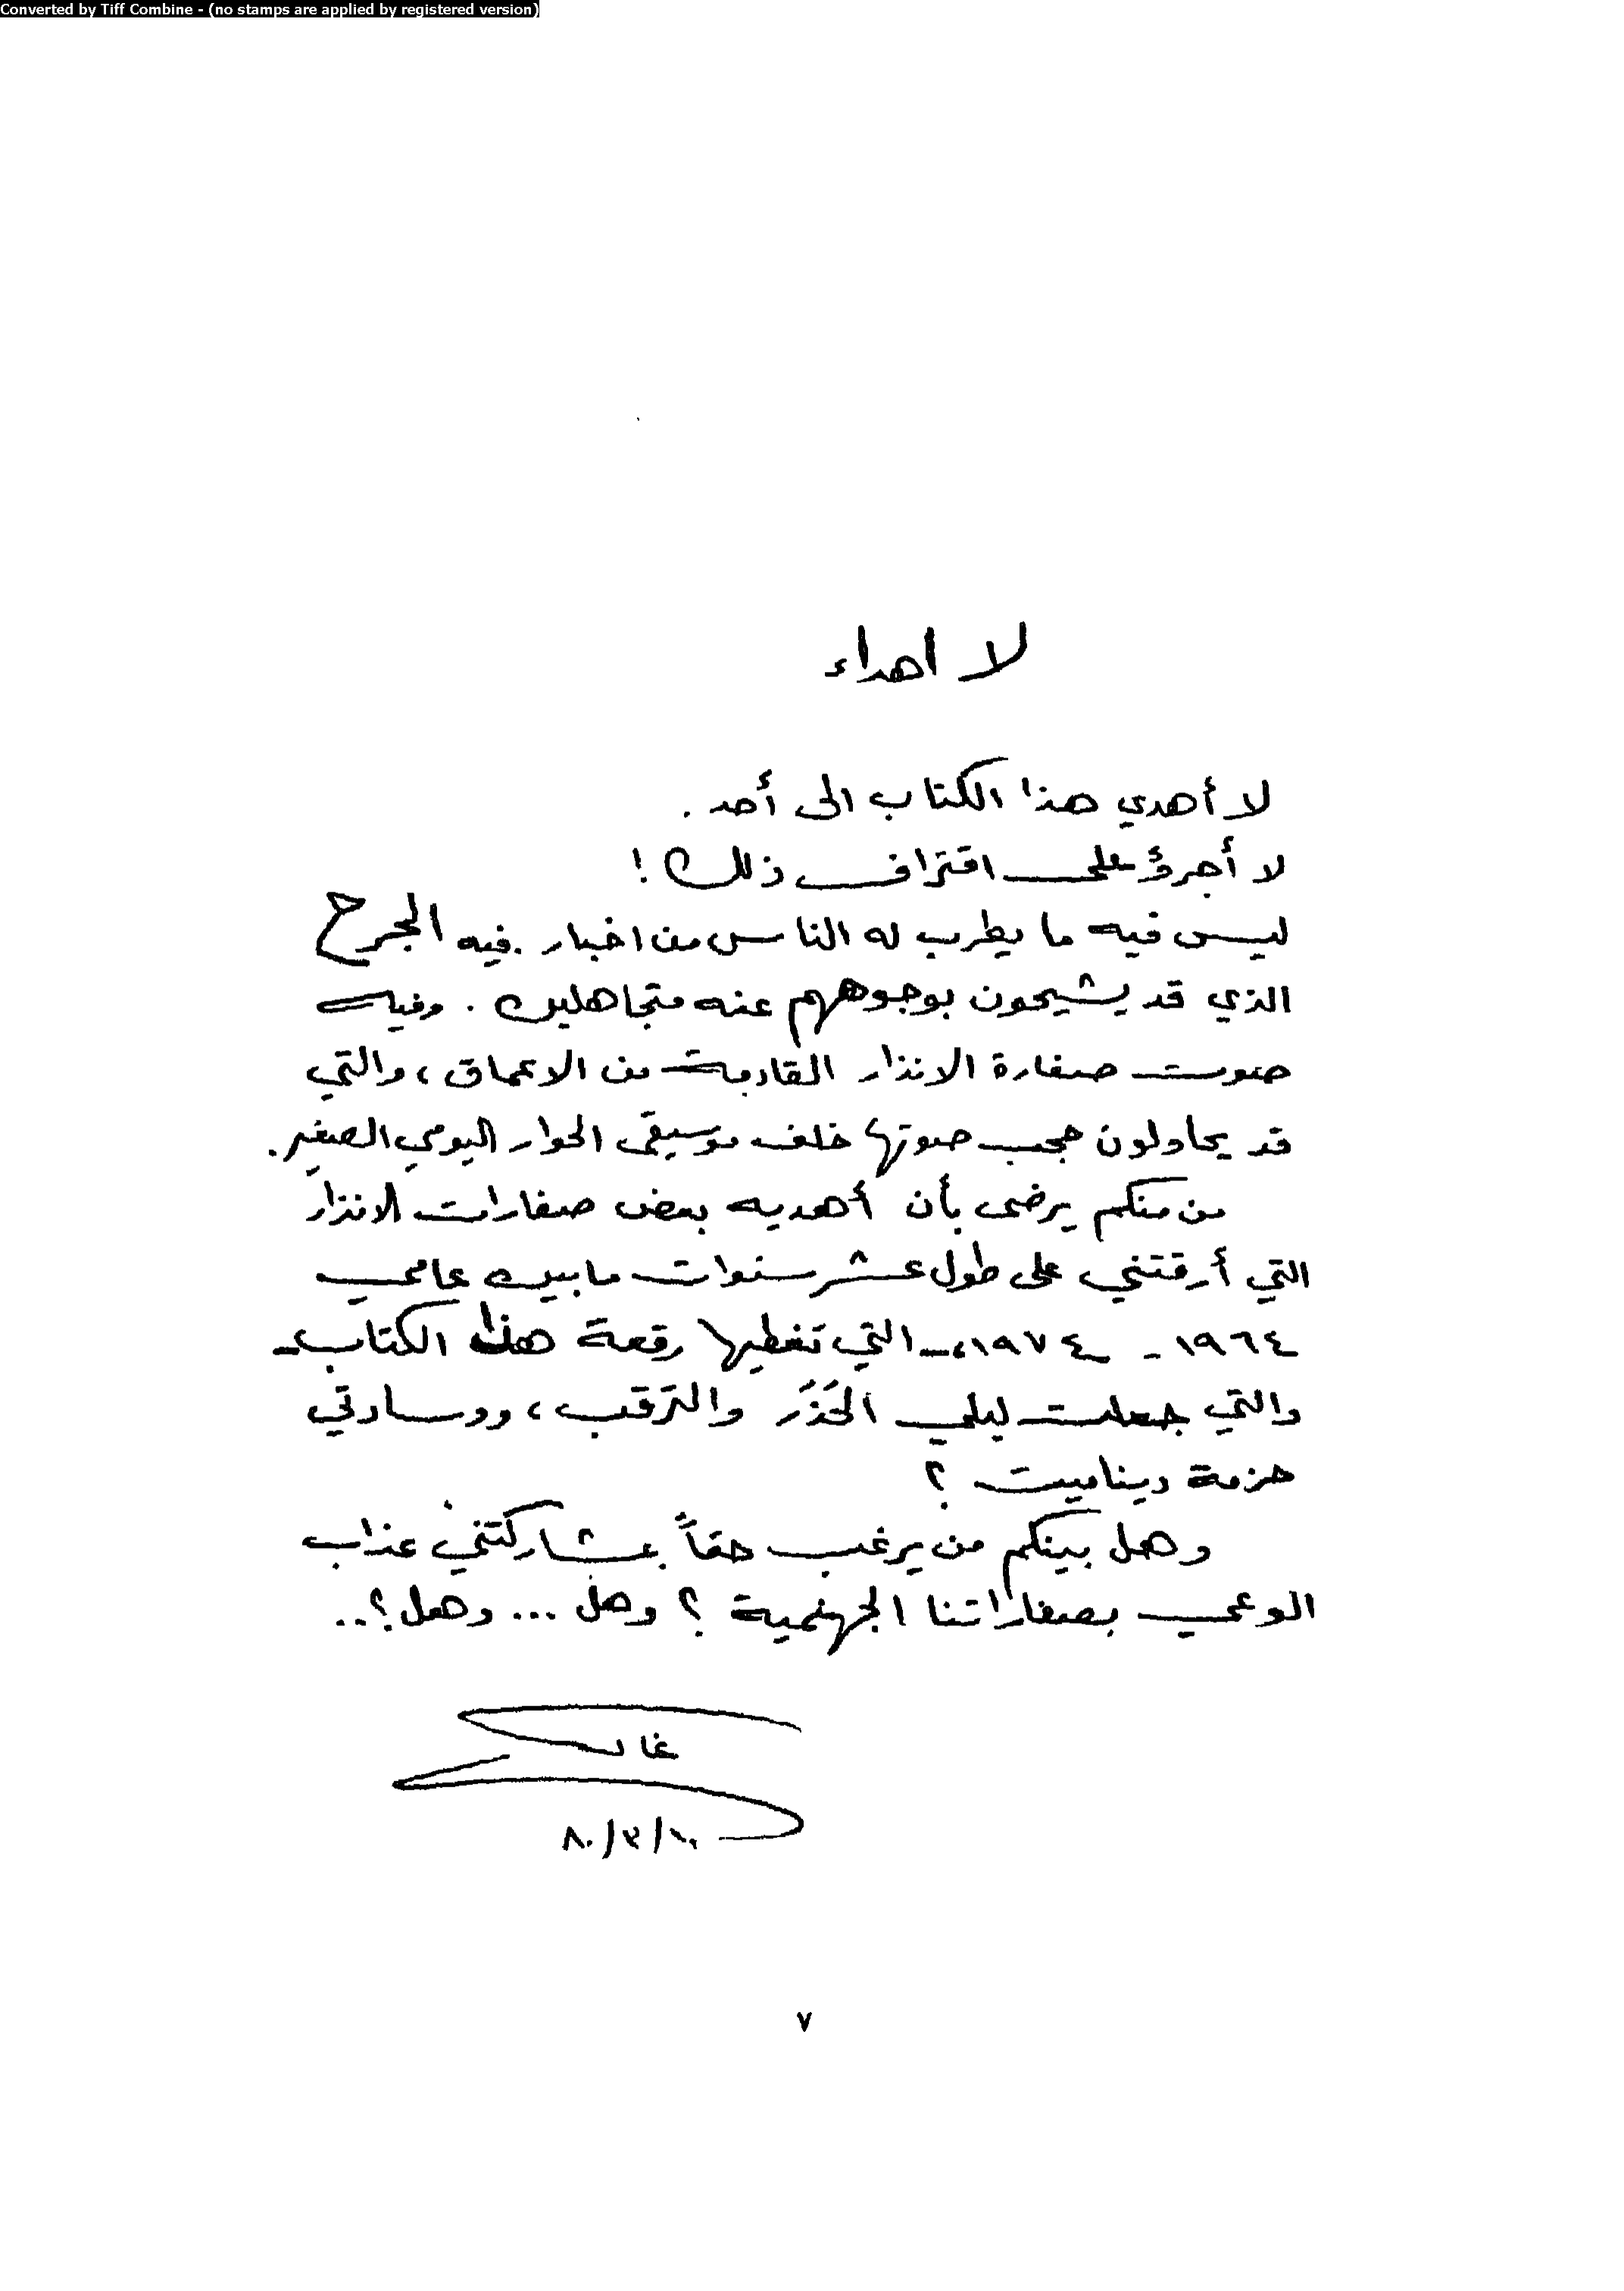 Converted by Tiff Combine - (no stamps are applied by registered version)
لا اهداء
لا أهدي هذا الكتاب الى أحد .
لا أجرؤ على اقتراف ذلك !
ليس فيه ما يطرب له الناس من اخبار . فيه الجرح
الذي قد يشيحون بوجوههم عنه متجاهلين . وفيه
صوت صفارة الانذار القادمة من الاعماق ، والتي
قد يحاولون حجب صوتها خلف موسيقى الحوار اليومي الصغير .
من منكم يرضى بأن أهديه بعض صفارات الانذار
التي أرقتني على طول عشر سنوات ما بين عامي
١٩٦٤ - ١٩٧٤ ، - التي تغطيها رقعة هذا الكتاب -
والتي جعلت ليلي الحَذَر والترقب ، ووسادتي
حزمة ديناميت ؟
وهل بينكم من يرغب حقاً بمشاركتني عذاب
الوعي بصفاراتنا الجهنمية ؟ وهل ... وهل ؟ ..
٨٠/٣/١٠
٧